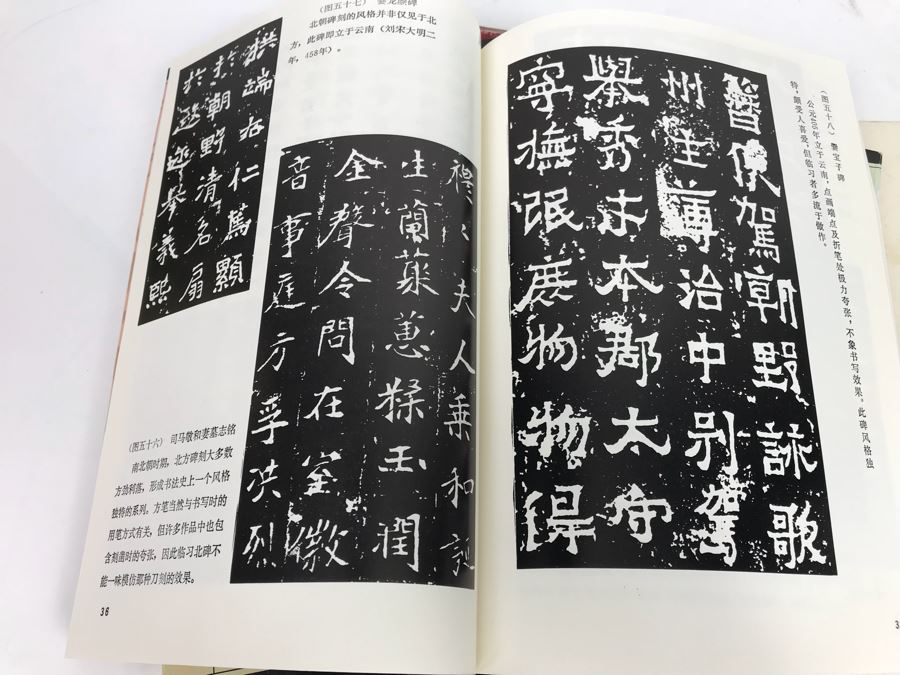 （图五十七） 爨龙颜碑
北朝碑刻的风格并非仅见于北
方，此碑即立于云南（刘宋大明二
年，458年）。
拱端右仁篤顯
於朝野清名扇
於遐邇舉義熙
夫人乗和誕
生蘭蘂蕙糅玉潤
金聲令問在室徽
音事庭方孚洪烈
（图五十六） 司马敬和妻墓志铭
南北朝时期，北方碑刻大多数
方劲利落，形成书法史上一个风格
独特的系列。方笔当然与书写时的
用笔方式有关，但许多作品中也包
含刻凿时的夸张，因此临习北碑不
能一味模仿那种刀刻的效果。
36
（图五十八） 爨宝子碑
公元405年立于云南，点画端点及折笔处极力夸张，不象书写效果。此碑风格独
特，颇受人喜爱，但临习者多流于做作。
駕朝野詠歌
州主簿治中别駕
舉秀才本郡太守
寧撫氓庶物物得